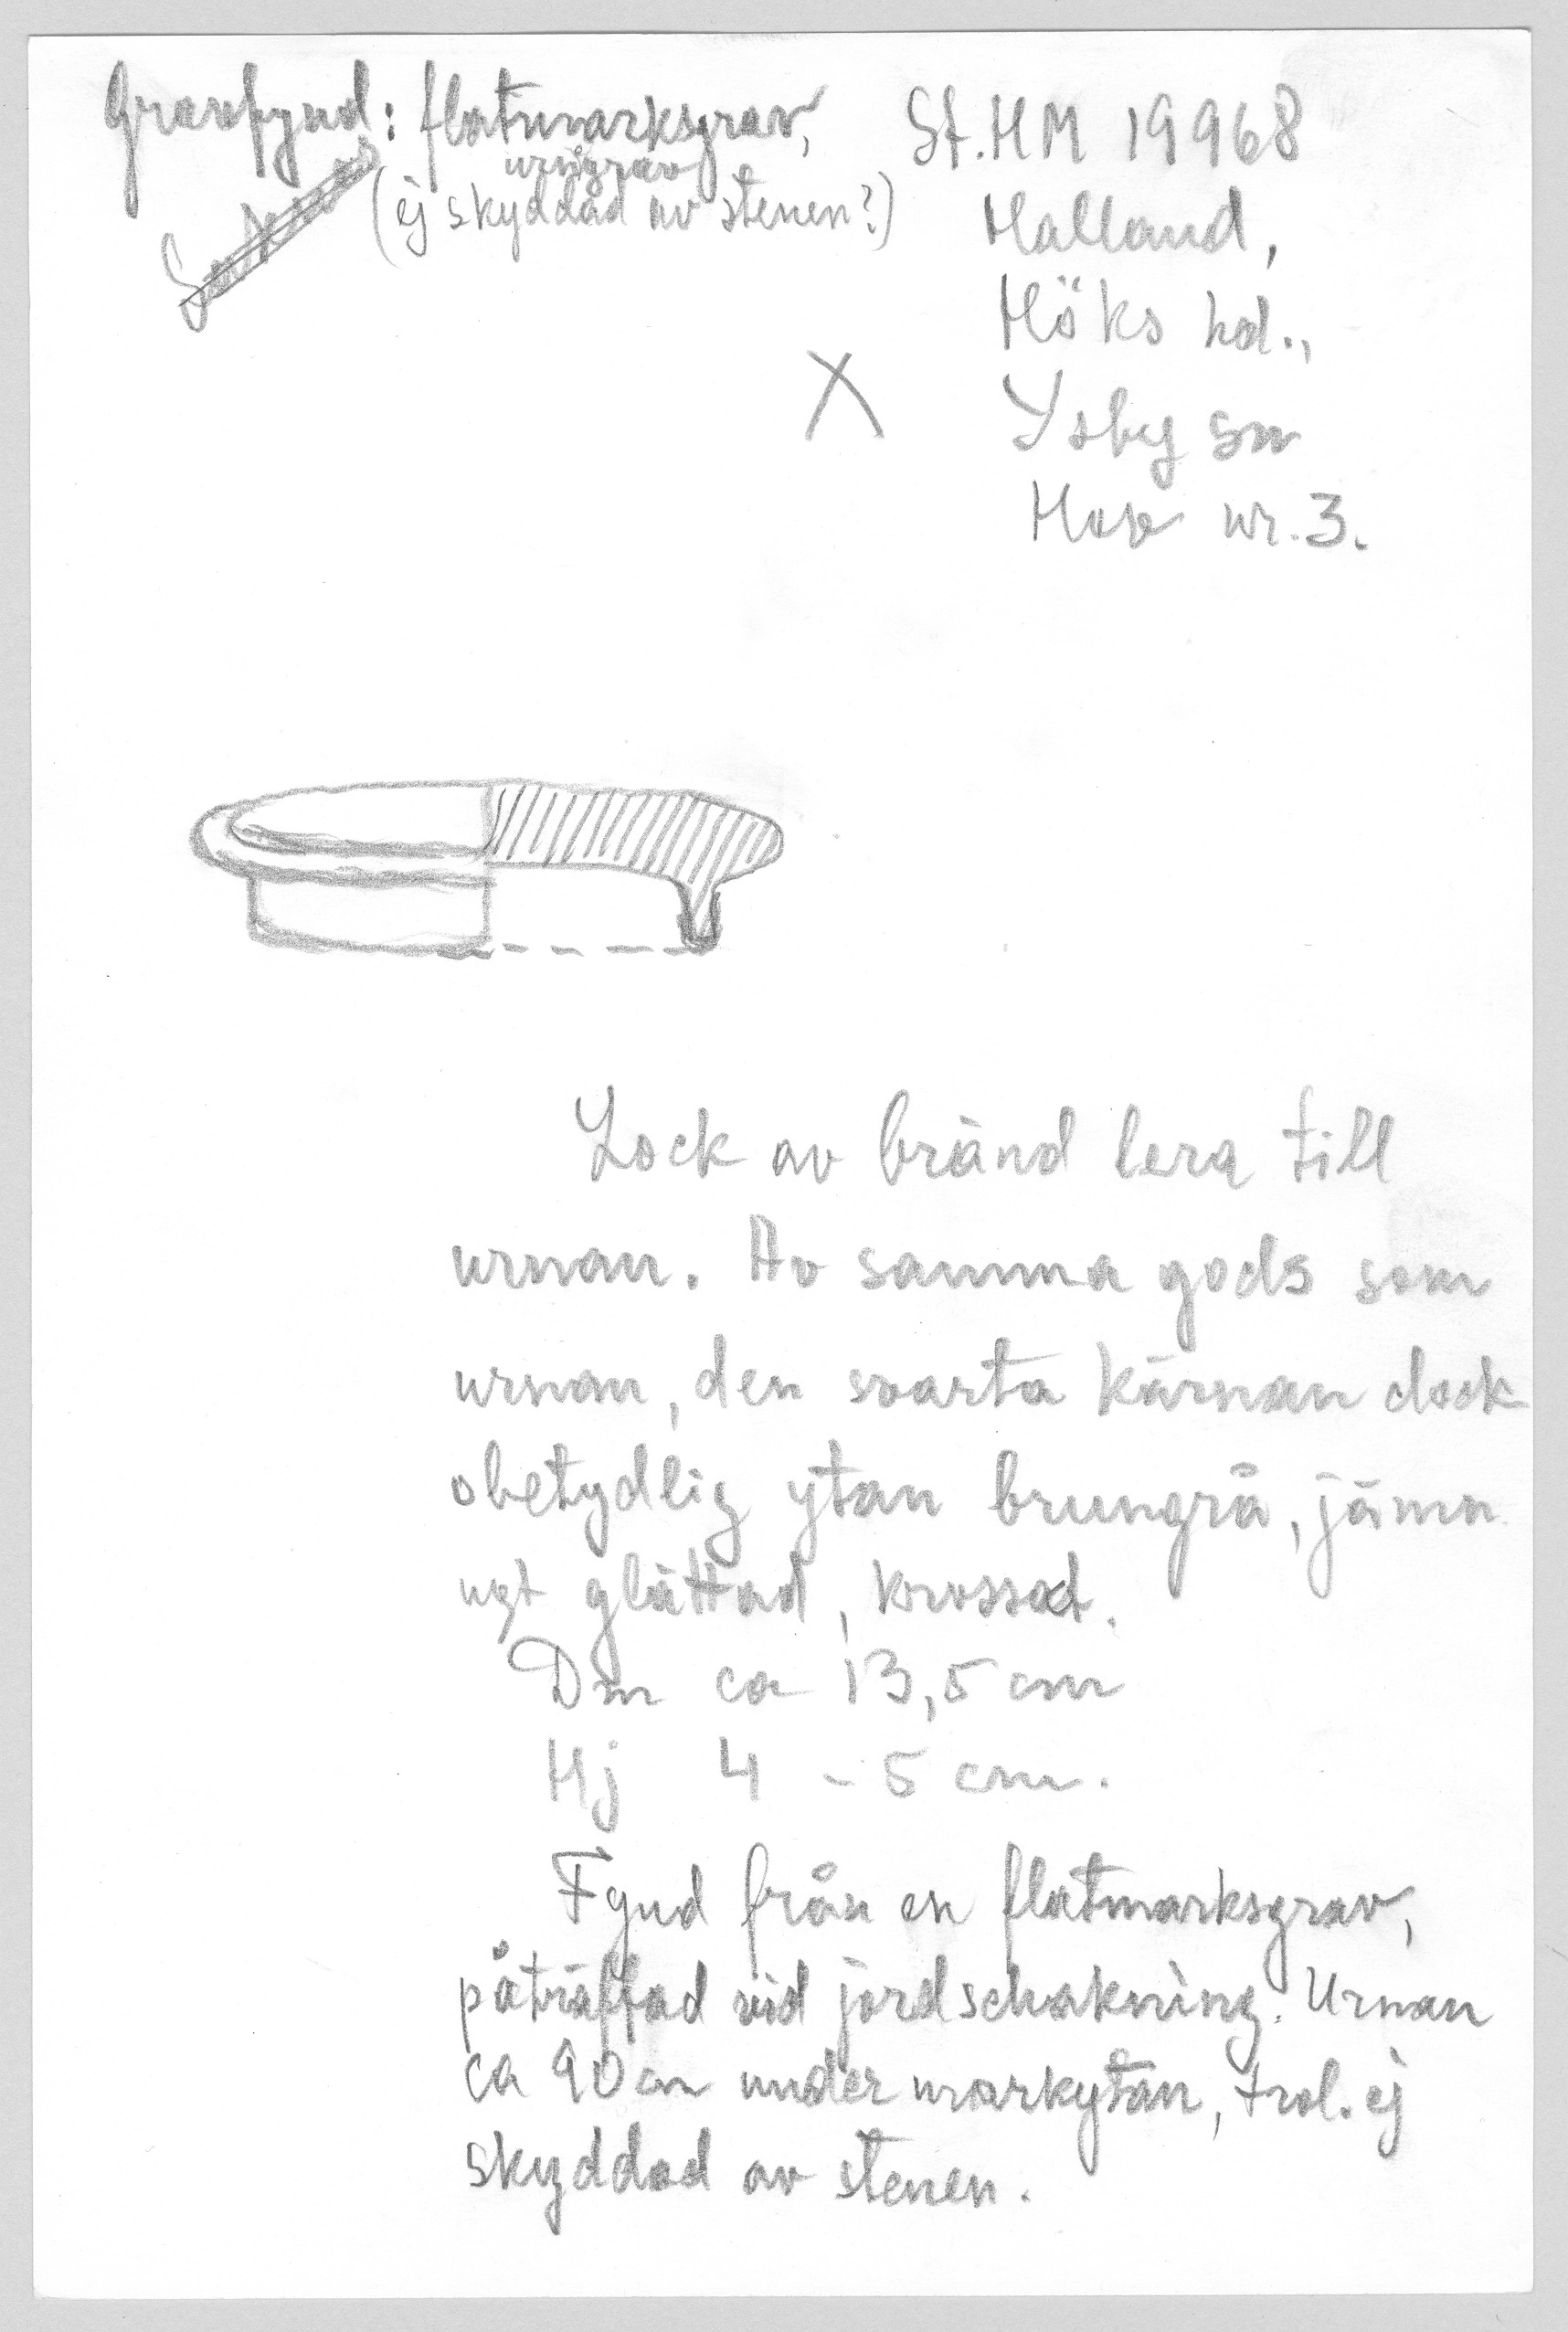 Gravfynd: flatmarksgrav,
urnegrav
(ej skyddad av stenen?)
St. HM 19968
Halland,
Höks hd.,
Ysby sn
Hov nr. 3.
X
Lock av bränd lera till
urnan. Av samma gods som
urnan, den svarta kärnan dock
obetydlig ytan brungrå, jämn
ngt glättad, krossad.
Dm ca 13,5 cm
Hj 4 - 5 cm.
Fynd från en flatmarksgrav,
påträffad vid jordschakning. Urnan
ca 90 cm under markytan, trol. ej
skyddad av stenen.